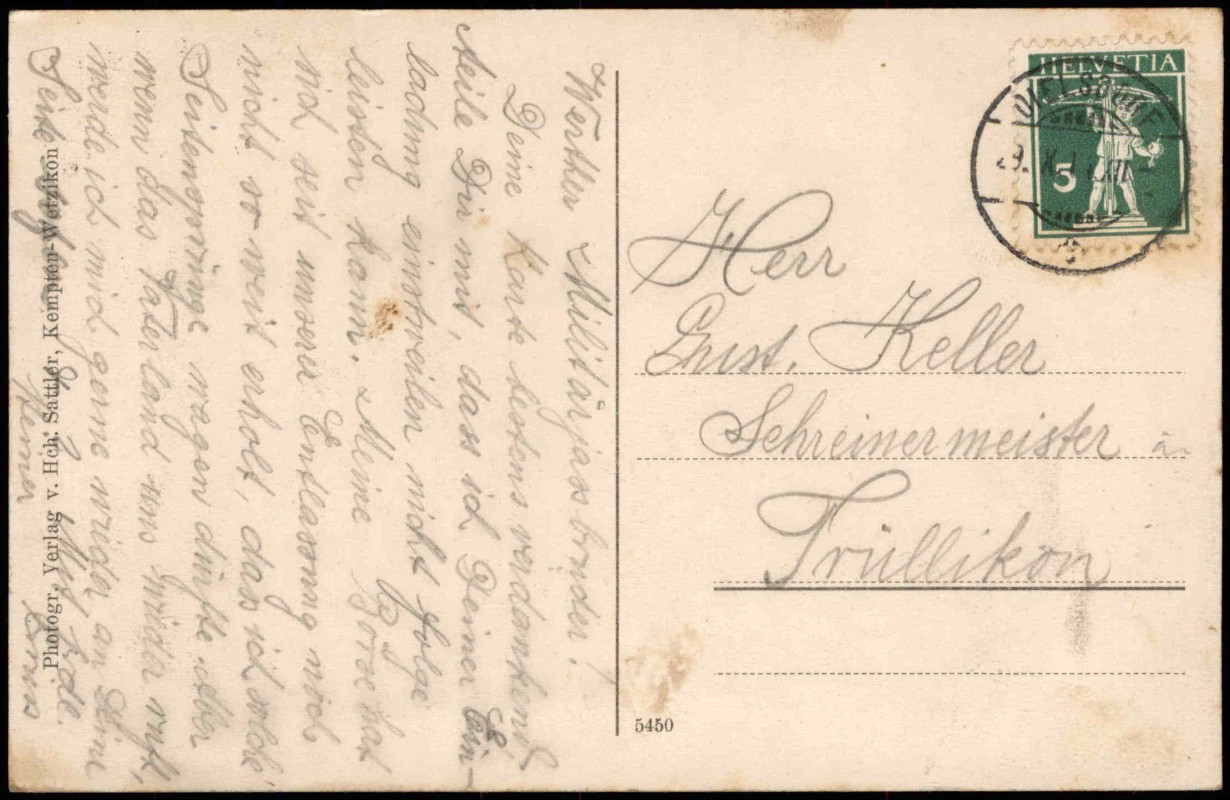 Werther Militärjassbruder!
Deine Karte bestens verdankend,
teile Dir mit, dass ich Deiner Ein-
ladung einstweilen nicht folge
leisten kann. Meine Börse hat
sich seit unserer Entlassung noch
nicht so weit erholt, dass ich solche
Seitensprünge wagen dürfte. Aber
wenn das Vaterland uns wieder ruft,
werde ich mich gerne wieder an Deine
Seite
HELVETIA
5
DIELSDORF
29.
Herr
Gust. Keller
Schreinermeister
Trüllikon
5450
Photogr. Verlag v. Hch. Sattler, Kempten-Wetzikon